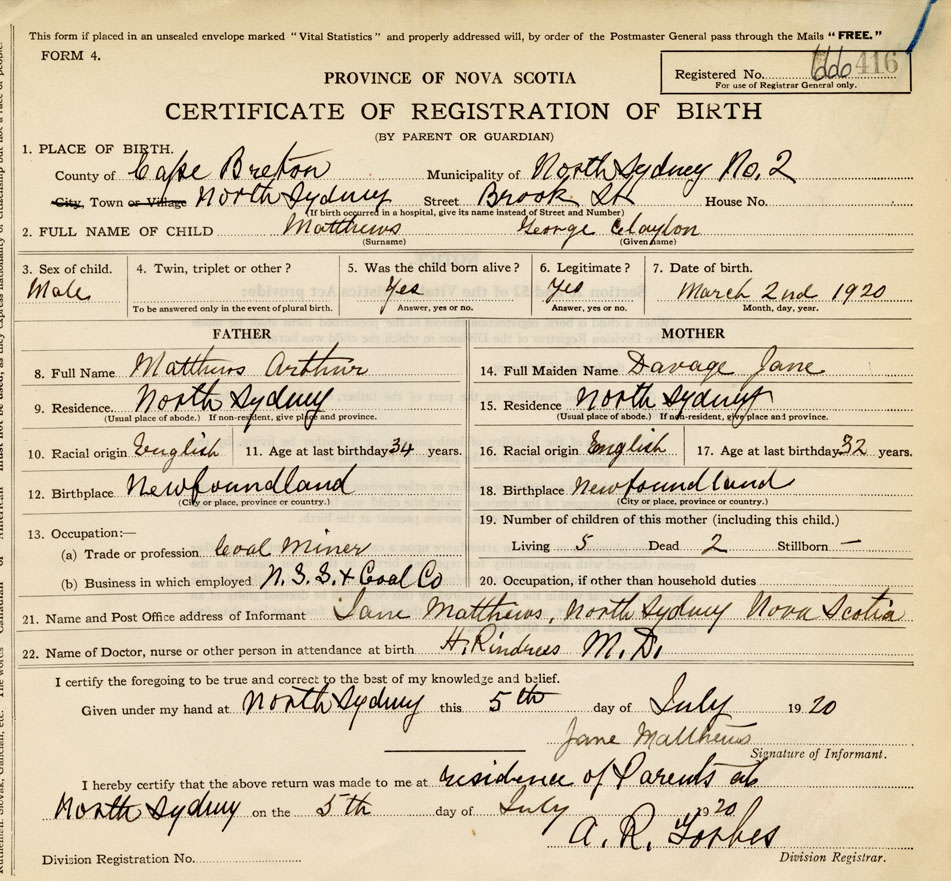 This form if placed in an unsealed envelope marked "Vital Statistics" and properly addressed will, by order of the Postmaster General pass through the Mails "FREE."
FORM 4.
PROVINCE OF NOVA SCOTIA
Registered No. 416
For use of Registrar General only.
CERTIFICATE OF REGISTRATION OF BIRTH
(BY PARENT OR GUARDIAN)
1. PLACE OF BIRTH.
County of Cape Breton Municipality of North Sydney No. 2
City, Town or Village North Sydney Street Brook St House No.
(If birth occurred in a hospital, give its name instead of Street and Number)
2. FULL NAME OF CHILD Matthews George Clayton
(Surname) (Given name)
3. Sex of child. 4. Twin, triplet or other? 5. Was the child born alive? 6. Legitimate? 7. Date of birth.
Male Yes Yes March 2nd 1920
To be answered only in the event of plural birth. Answer, yes or no. Answer, yes or no. Month, day, year.
FATHER MOTHER
8. Full Name Matthews Arthur 14. Full Maiden Name Davage Jane
9. Residence. North Sydney 15. Residence North Sydney
(Usual place of abode.) If non-resident, give place and province. (Usual place of abode.) If non-resident, give place and province.
10. Racial origin English 11. Age at last birthday 34 years. 16. Racial origin English 17. Age at last birthday 32 years.
12. Birthplace Newfoundland 18. Birthplace Newfoundland
(City or place, province or country.) (City or place, province or country.)
13. Occupation:— 19. Number of children of this mother (including this child.)
(a) Trade or profession Coal Miner Living 5 Dead 2 Stillborn —
(b) Business in which employed N. S. S. & Coal Co 20. Occupation, if other than household duties
21. Name and Post Office address of Informant Jane Matthews, North Sydney Nova Scotia
22. Name of Doctor, nurse or other person in attendance at birth H. M. D.
I certify the foregoing to be true and correct to the best of my knowledge and belief.
Given under my hand at North Sydney this 5th day of July 1920
Jane Matthews
Signature of Informant.
I hereby certify that the above return was made to me at residence of Parents at
North Sydney on the 5th day of July 1920
A. R. Forbes
Division Registration No. Division Registrar.